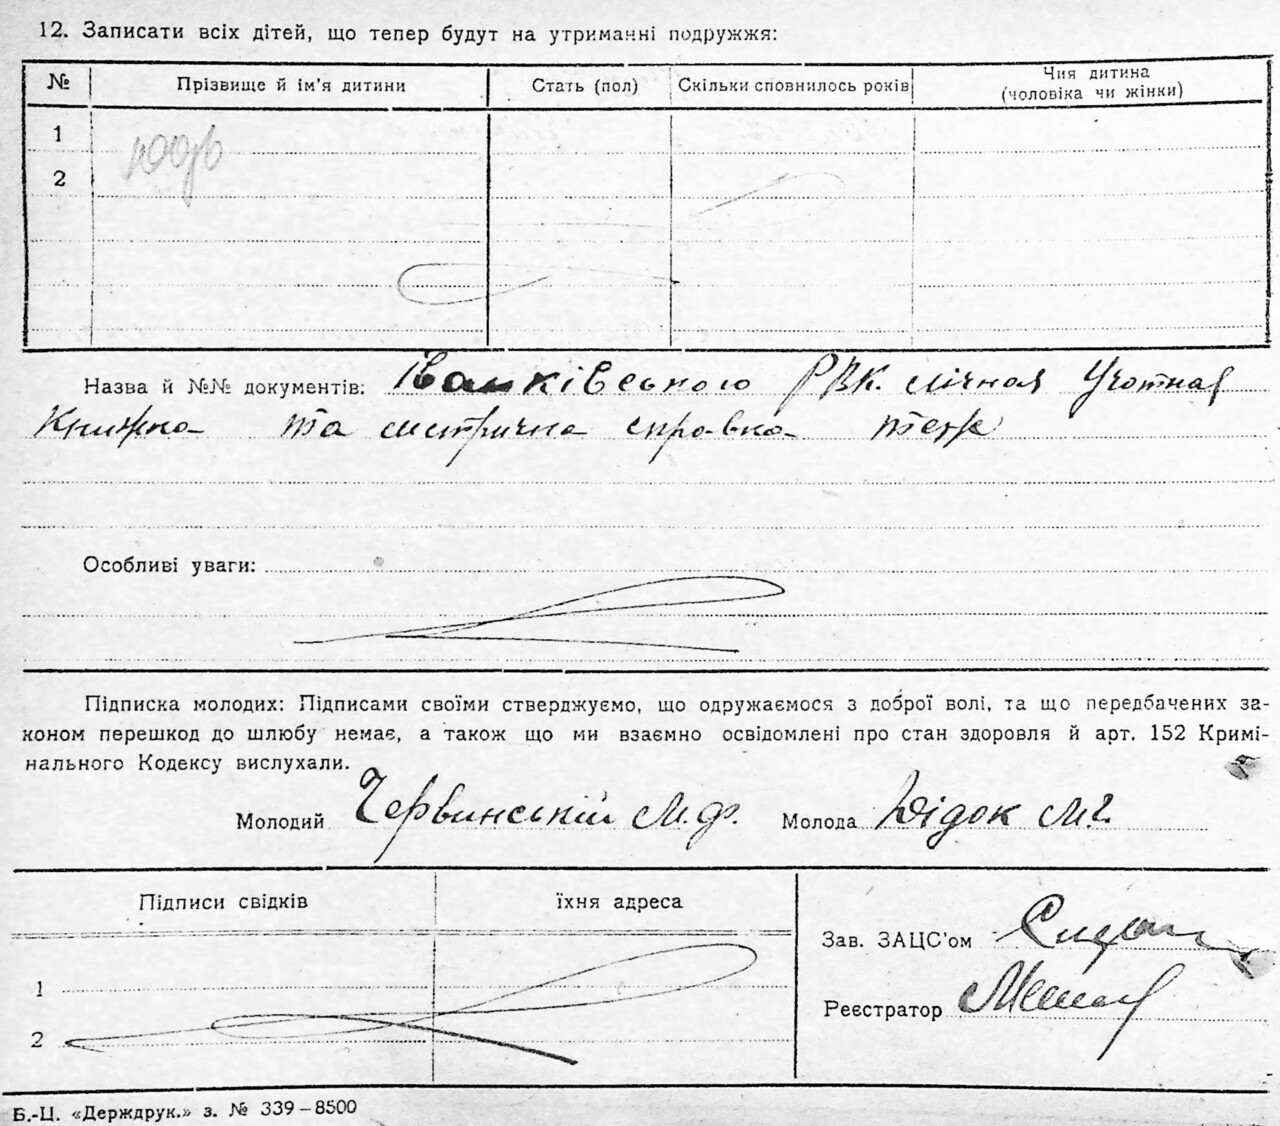 12. Записати всіх дітей, що тепер будут на утриманні подружжя:
№ Прізвище й ім'я дитини Стать (пол) Скільки сповнилось років Чия дитина (чоловіка чи жінки)
1
2
Назва й №№ документів: Іванківського РВК. лічная Учотная
Книжка та метрична справка
Особливі уваги:
Підписка молодих: Підписами своїми стверджуємо, що одружаємося з доброї волі, та що передбачених за-
коном перешкод до шлюбу немає, а також що ми взаємно освідомлені про стан здоровля й арт. 152 Кримі-
нального Кодексу вислухали.
Молодий Червинській М.Ф. Молода Дідок М.Г.
Підписи свідків їхня адреса
Зав. ЗАЦС'ом
1
Реєстратор
2
Б.-Ц. «Держдрук.» з. № 339-8500